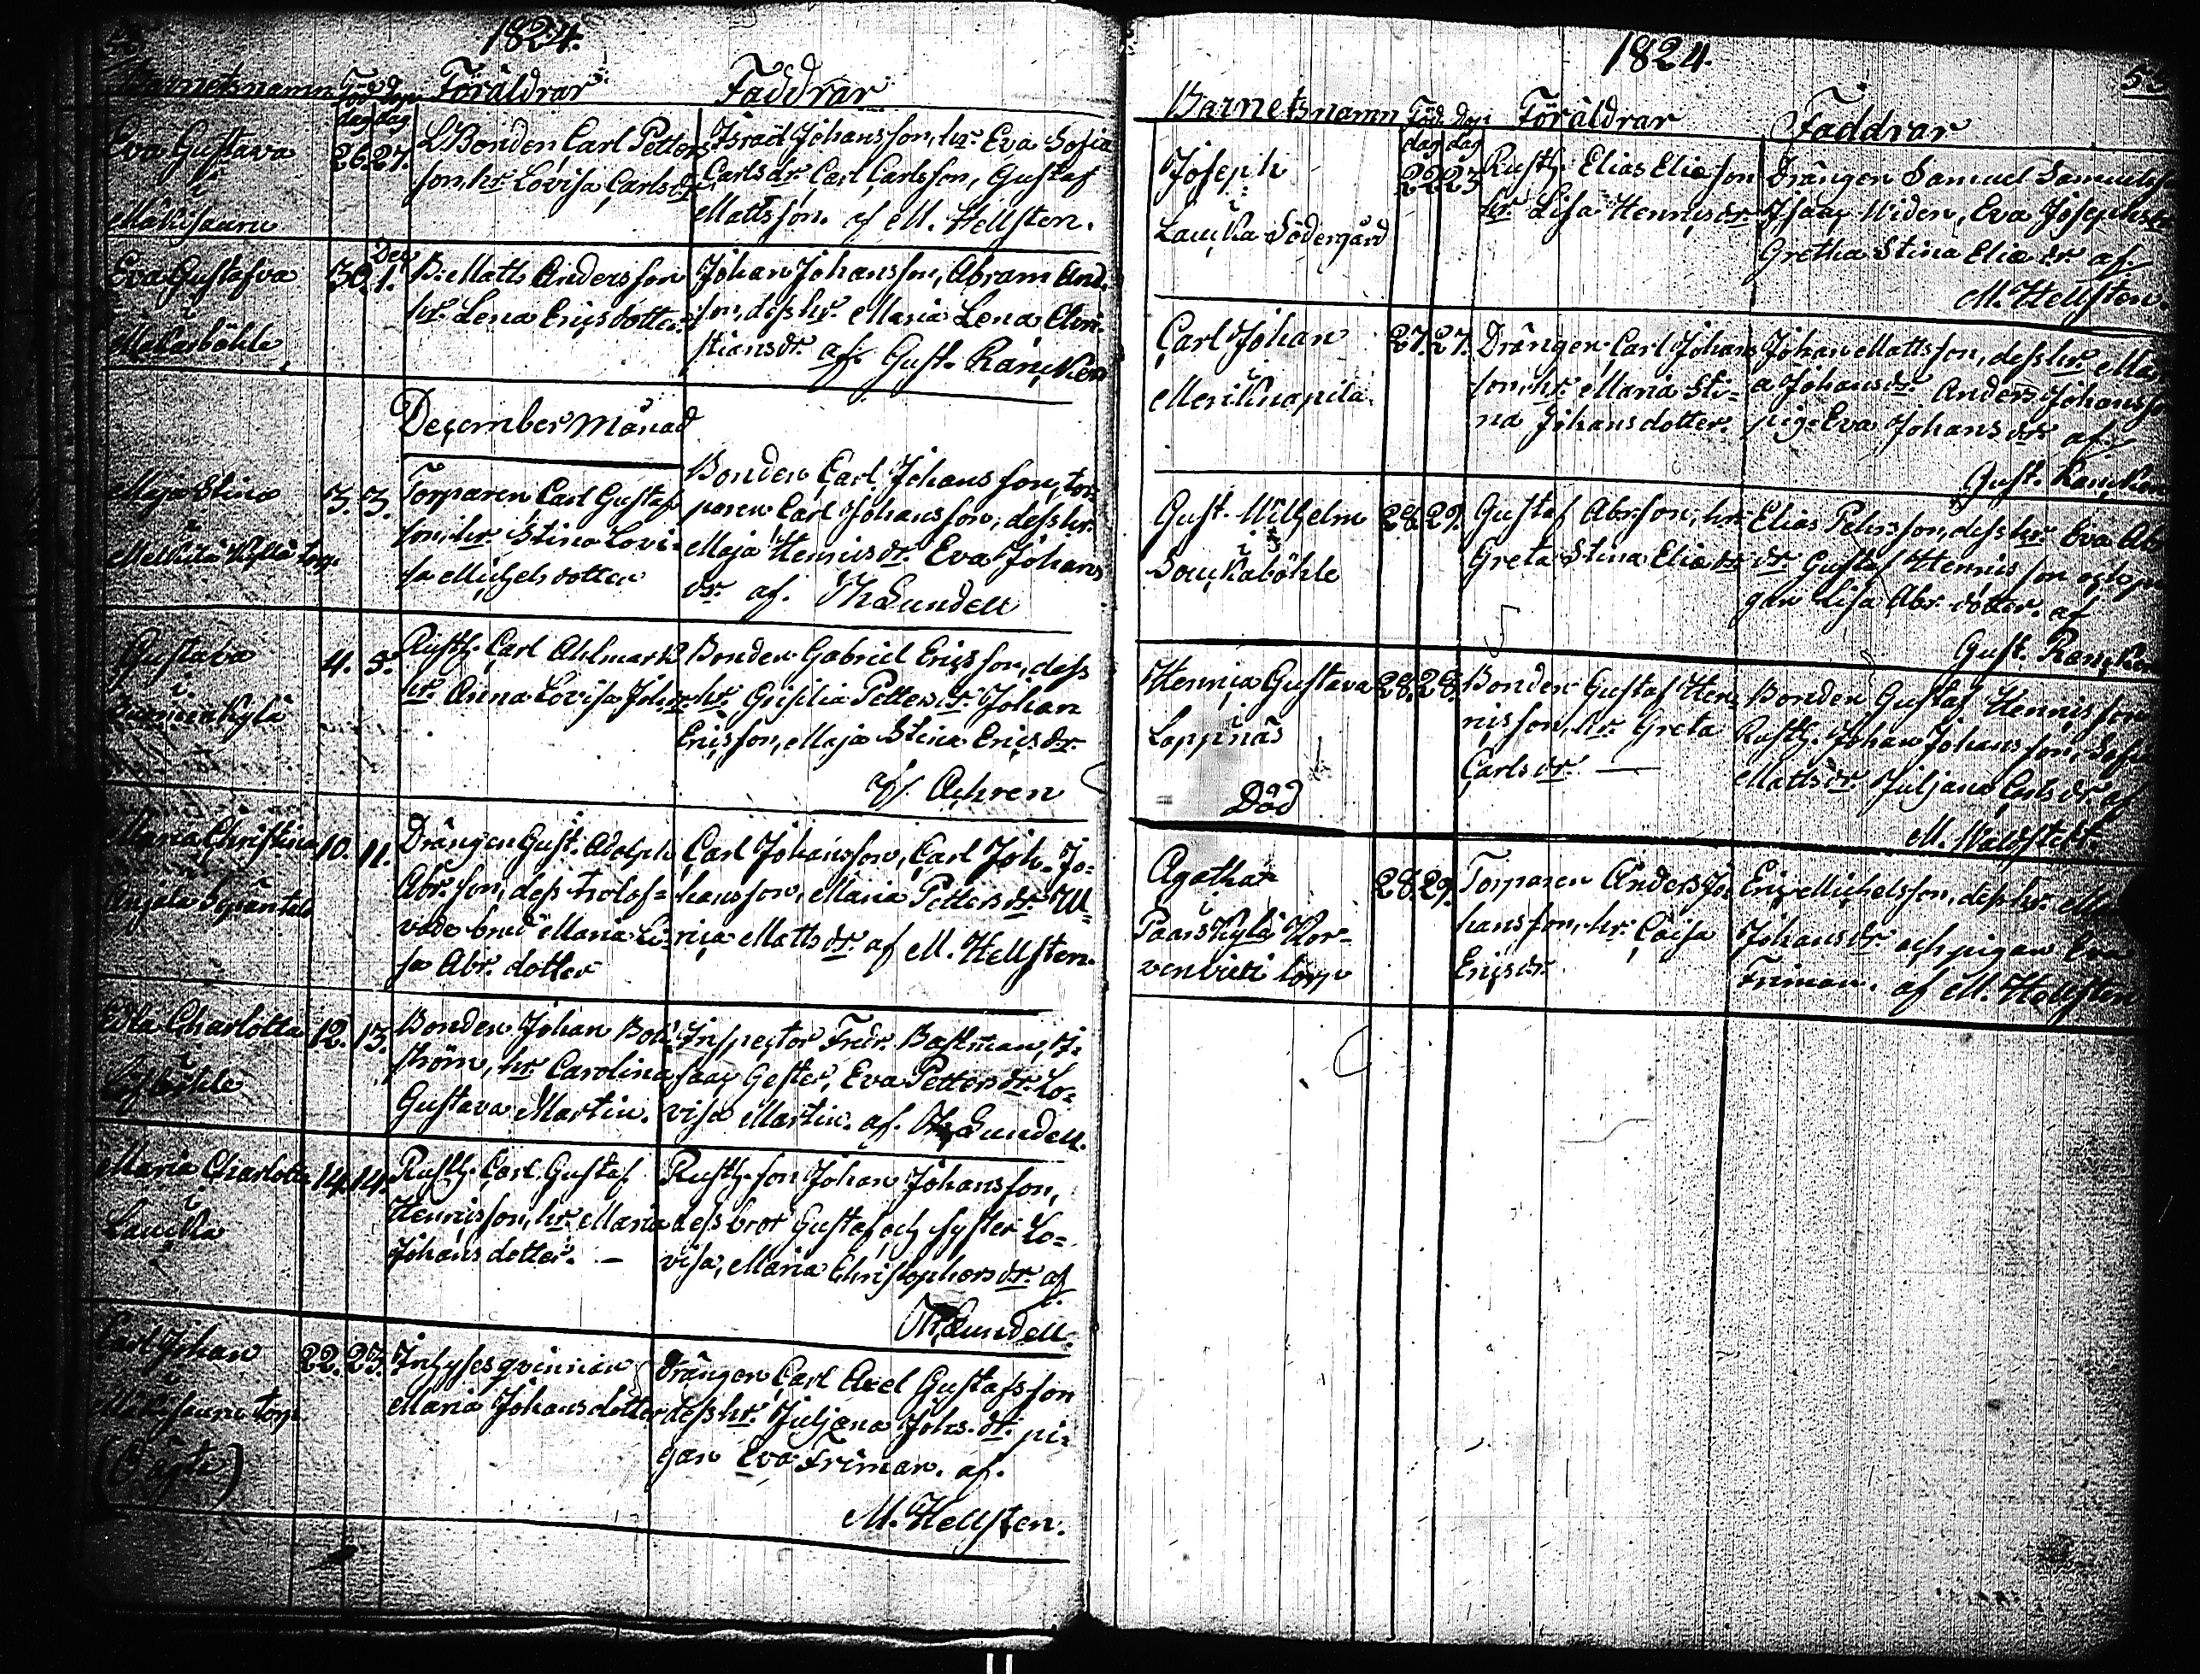 1824.
Barnets namn Föd. dag Döp. dag Föräldrar Faddrar
Eva Gustava
i
26. 27.
L Bonden Carl Petters
son, hr. Lovisa Carlsdr.
Israel Johansson, hr. Eva Sofia
Carlsdr. Carl Carlsson, Gustaf
Mattsson. af M. Hellsten.
Eva Gustafva
i
30. Dec. 1.
B: Matts Andersson
hr. Lena Ericsdotter
Johan Johansson, Abram And.
son, dess hr. Maria Lena Chri-
stiansdr. af Gust. Rancken
December Månad
Maja Stina
i
3. 3.
Torparen Carl Gustaf
son, hr. Stina Lovi-
sa Michelsdotter
Bonden Carl Johansson, tor-
paren Carl Johansson, dess hr.
Maja Henricsdr. Eva Johans
dr. af. Th Lundell
Gustava
i.
4. 5.
Rusth. Carl Ahlmark
hr. Anna Lovisa Johsdr.
Bonden Gabriel Ericsson, dess
hr. Grisilia Pettersdr. Johan
Ericsson, Maja Stina Ericsdr.
af Achren
Maria Christina
i
Anjala
10. 11.
Drängen Gust. Adolph
Abr.son, dess trolof-
vade brud Maria Lo-
sa Abr. dotter
Carl Johansson, Carl Joh. Jo-
hansson, Maria Pettersdr. Ul-
rica Mattsdr. af M. Hellsten.
Edla Charlotta
i
12. 13.
Bonden Johan Bok-
ström, hr. Carolina
Gustava Martin.
Inspector Fredr. Bastman, I-
saac Gester, Eva Pettersdr. Lo-
visa Martin. af. Th Lundell.
Maria Charlotta
i
Laucka
14. 14.
Rusth. Carl Gustaf
Henricsson, hr. Maria
Johansdotter. —
Rusth. son Johan Johansson,
dess bror Gustaf och syster Lo-
visa, Maria Christophersdr. af
Th Lundell.
Carl Johan
i
torp
(Oägta)
22. 23.
Inhyses qvinnan
Maria Johansdotter
Drängen Carl Axel Gustafsson
dess hr. Juljana Johs. dr. pi-
gan Eva Friman. af.
M. Hellsten.
1824.
Barnets namn Föd. dag Döp. dag Föräldrar Faddrar
Joseph
i
Laucka Södergård
22. 23
Rusth. Elias Eliæson
hr. Lisa Henricsdr.
Drängen Samuel Samuelss
Isaac Widen, Eva Josephsdr
Gretha Stina Eliædr. af
M. Hellsten.
Carl Johan
i
27. 27.
Drängen Carl Johans
son, hr. Maria Sti-
na Johansdotter.
Johan Mattsson, dess hr. Mari
a Johansdr. Anders Johansso
pig. Eva Johansdr. af
Gust. Rancken
Gust. Wilhelm
i
Souckaböhle
28. 29.
Gustaf Abr.son, hr.
Greta Stina Eliædr
Elias Pehrsson, dess hr. Eva Abr
dr. Gustaf Henricsson och pi
gan Lisa Abr. dotter. af
Gust. Rancken
Henrica Gustava
i
Loppnäs
Död
28. 28.
Bonden Gustaf Hen-
ricsson, hr. Greta
Carlsdr. —
Bonden Gustaf Henricsson
Rusth. Johan Johansson, Sofia
Mattsdr. Juljana Carlsdr. af
M. Waldstedt.
Agatha
i
Paaskylä Kor-
venvieti torp
28. 29.
Torparen Anders Jo-
hansson, hr. Caisa
Ericsdr.
Eric Michelsson, dess hr. Ma
Johansdr. och pigan Eva
Friman. af M. Hellsten